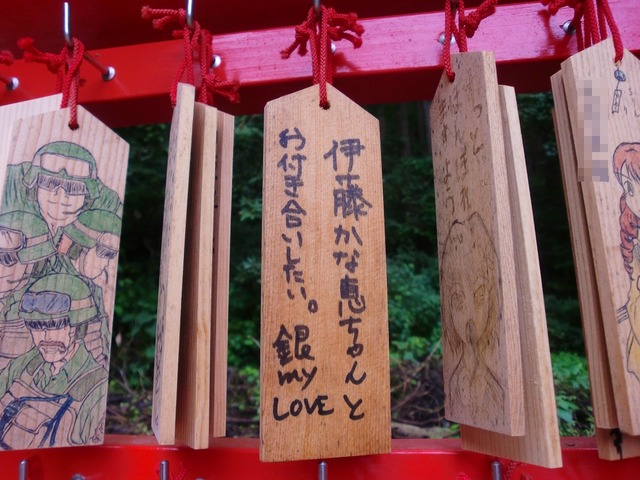 伊藤かな恵ちゃんと
お付き合いしたい。
銀
my
LOVE